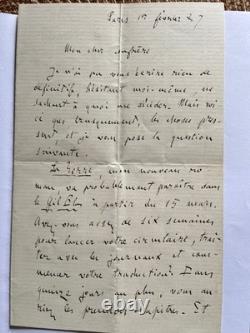 Paris 1er février 87
Mon cher confrère
Je n'ai pu vous écrire rien de
définitif, hésitant moi-même, ne
sachant à quoi me décider. Mais voi
ce que brusquement, les choses pres-
sent et je vous pose la question
suivante.
La Terre, mon nouveau ro-
man, va probablement paraître dans
le Gil Blas à partir du 15 mars.
Avez-vous assez de six semaines
pour lancer votre circulaire, trai-
ter avec les journaux et com-
mencer votre traduction? Dans
quinze jours au plus, vous au-
riez les premiers chapitres. Et